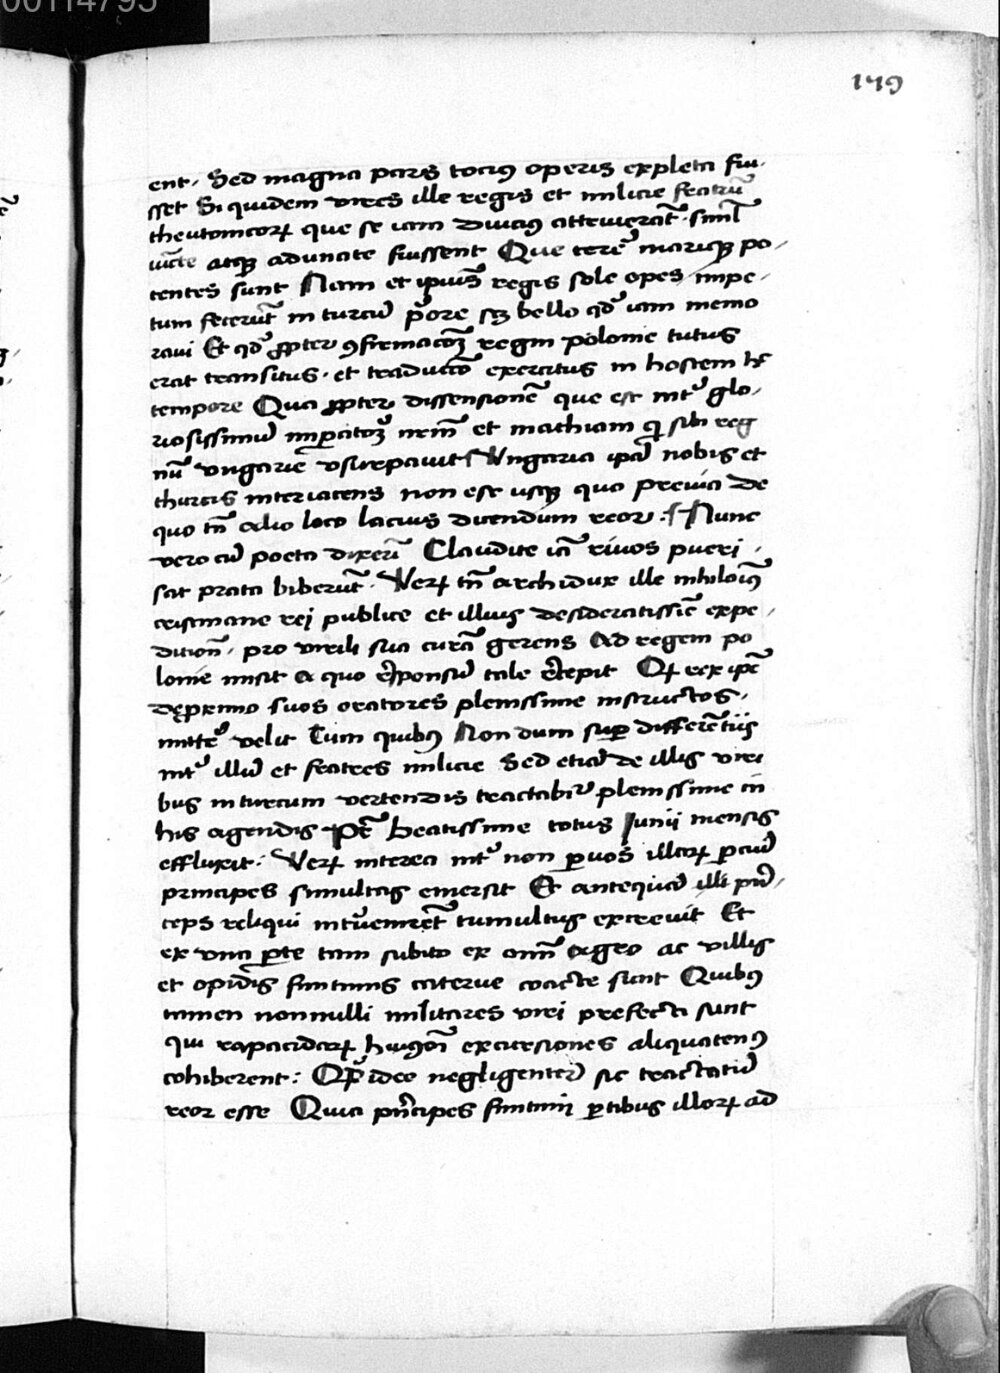 00114795
179
ent. Sed magna pars tociꝰ operis expleta fiu-
sset Si quidem vires ille regis et milicie fratrū
theutonicoꝝ que se iam diuciꝰ attriuerāt. simł
iūcte atqꝫ adunate fuissent Que terē mariqꝫ po-
tentes sunt Nam et ipius̄ regis sole opes impe-
tum fecerūt in turcū p̄ore sꝫ bello qd̄ iam memo
raui Et qd̄ ꝓpter ꝯfirmacōꝫ regni polonie tutus
erat transitus. et traductō exercitus in hostem hͦ
tempore Quia ꝓpter dissensionē que est int̄ glo-
riosissimū imꝑatoꝫ nr̄m et mathiam qͥ sibi reg
nū vngarie vsurpauit Vngaria ipā nobis et
thurcis interiacens non est usqꝫ quo preuia de
quo tn̄ alio loco lacius dicendum reor. Nunc
vero cū poeta dixerī Claudite iā riuos pueri.
sat prata biberūt. Veꝝ tn̄ archidux ille nihiloīꝰ
cristiane rei publice et illius desideratissīe expe-
dicōn̄. pro virili sua curā gerens Ad regem po
lonie misit a quo r̄sponsū tale r̄cepit Qꝫ rex ipē
deproximo suos oratores plenissime instructos.
mittē velit Cum quibꝰ Non dum suꝑ differētiis
int̄ illū et fratres milicie Sed eciā de illis viri
bus in turcum vertendis tractabit᷑ plenissime in
his agendis Pr̄ beatissime totus Junii mensis
effluxit. Veꝝ interea int̄ non ꝑuos illoꝝ ꝑciū
principes simultas emersit Et antequā illi prī-
ceps reliqui int̄uenirēt tumultus excreuit Et
ex vna ꝑte tam subito ex om̄i agro ac villis
et opidis finitimis caterue coacte sunt Quibꝰ
tamen nonnulli militares viri prefecti sunt
qui rapacidaꝝ huiꝰōi excursiones aliquatenꝰ
cohiberent: Qd̄ ideo negligenter sic tractatū
reor esse Quia prīcipes finitimi ꝑtibus illoꝝ ad